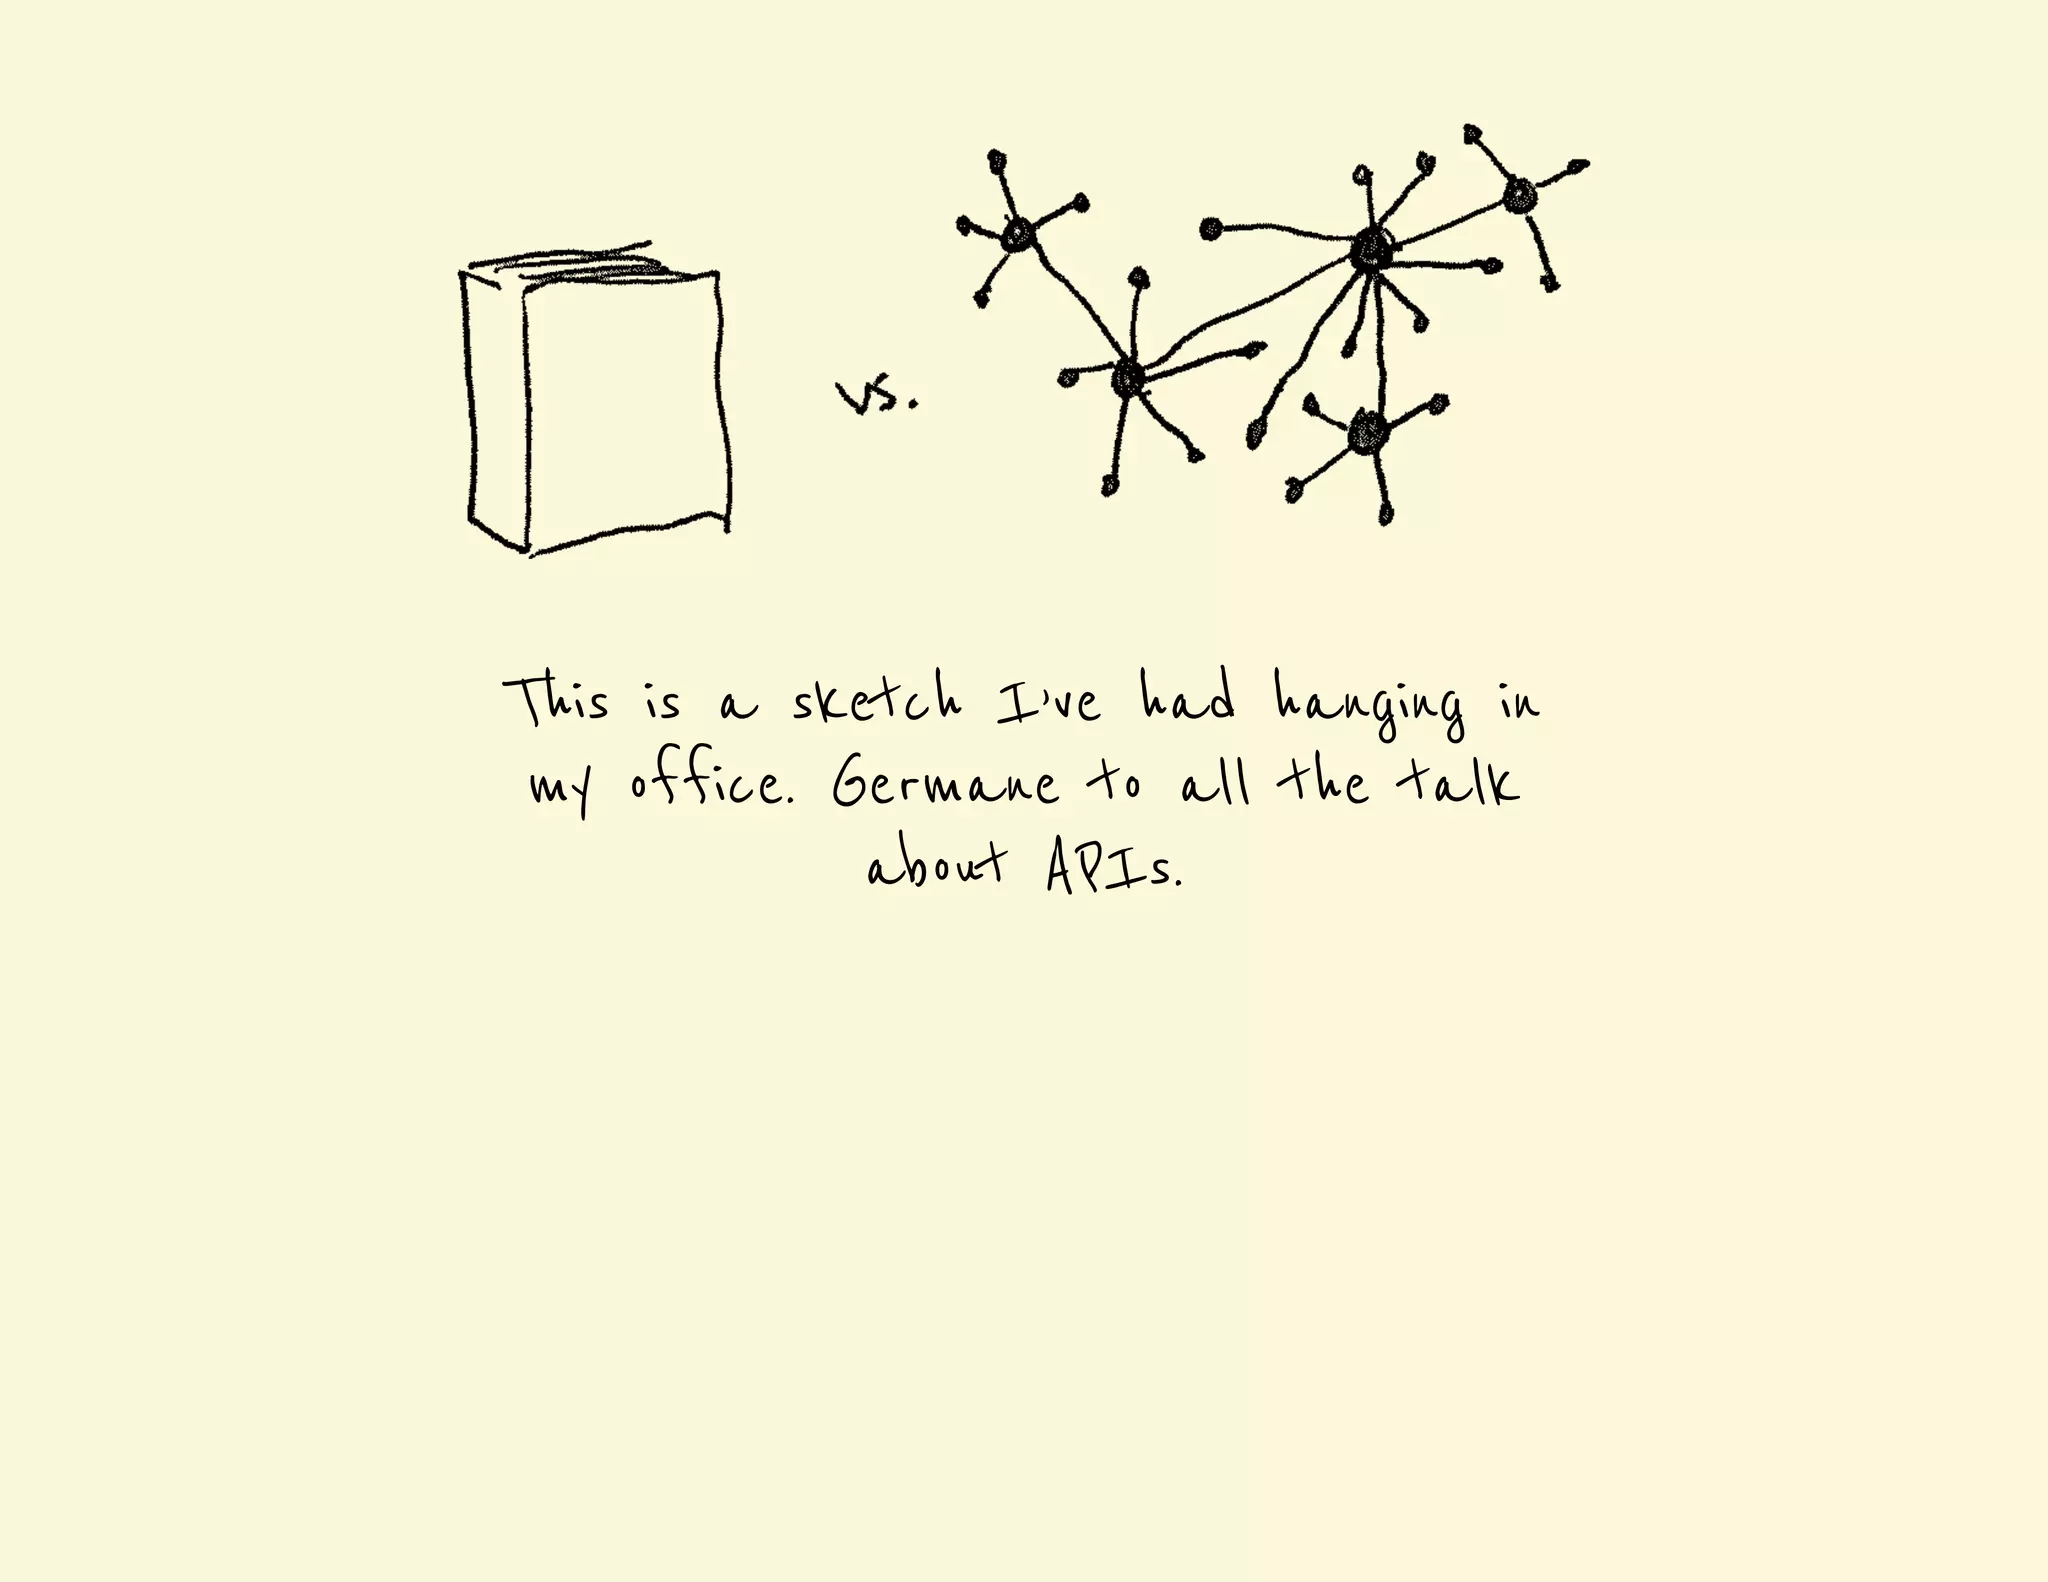 vs.
This is a sketch I've had hanging in
my office. Germane to all the talk
about APIs.